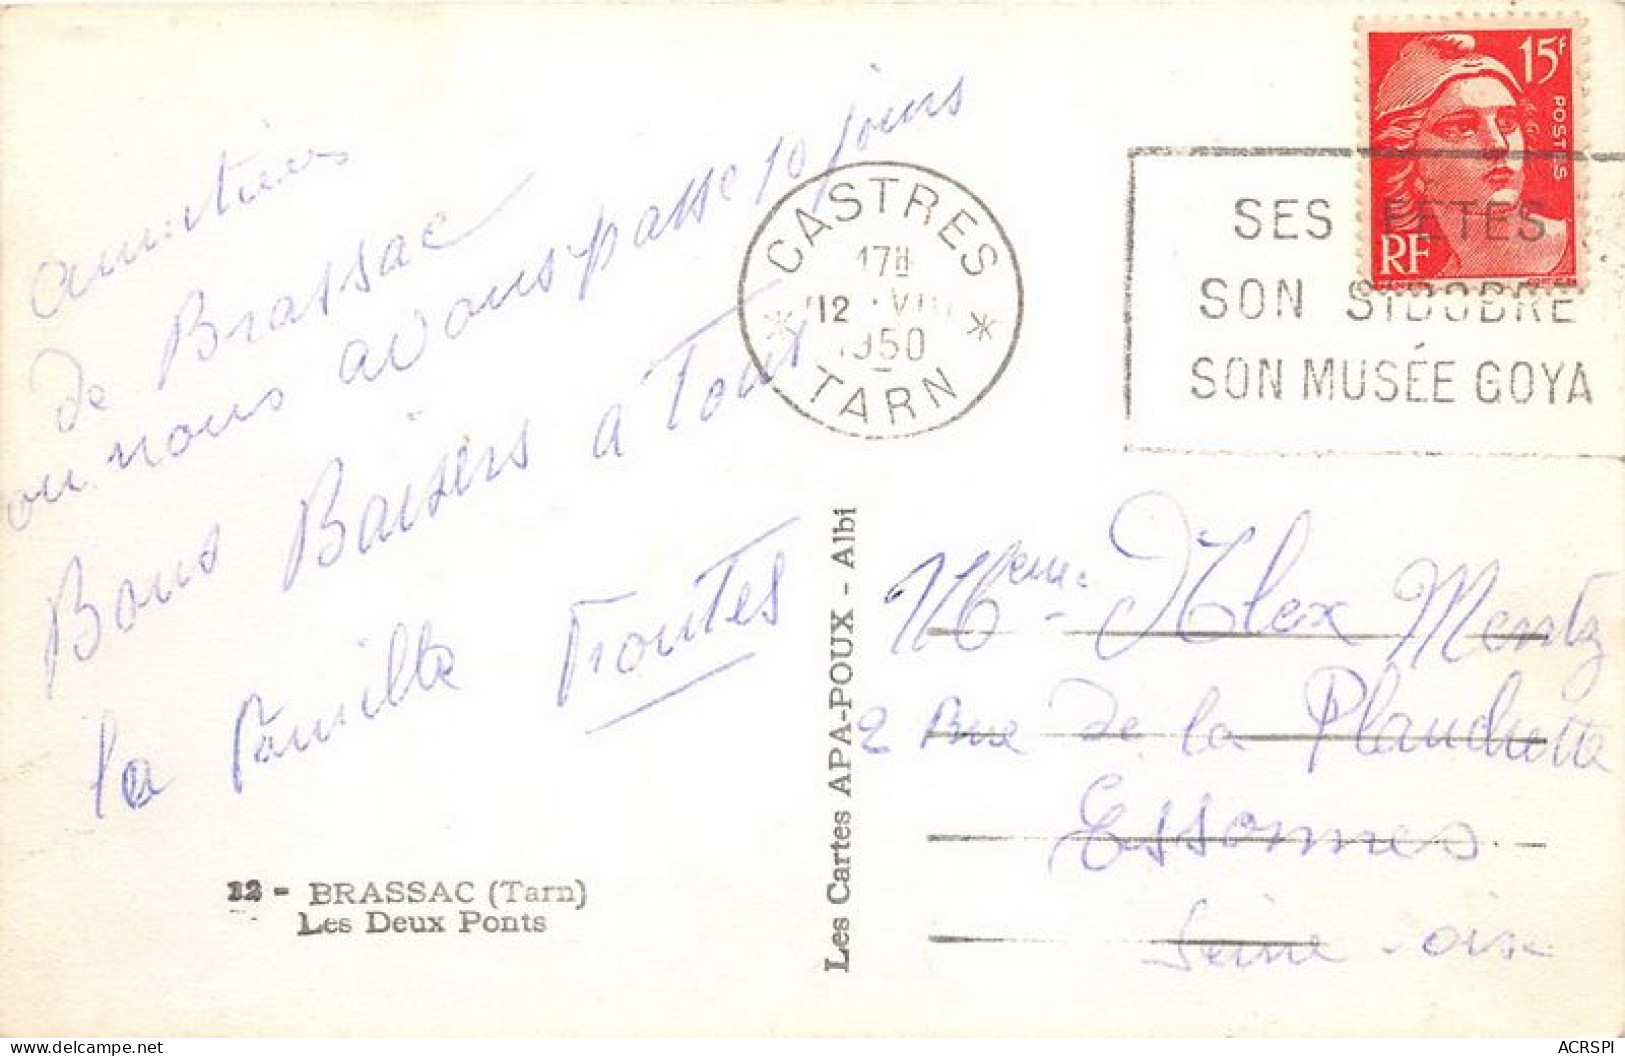 amitiées
de Brassac
ou nous avons passe 10 jours
Bons Baisers a Tous
la famille Troutes
12 - BRASSAC (Tarn)
Les Deux Ponts
Les Cartes APA-POUX - Albi
CASTRES
17H
12 · VIII
1950
TARN
SES FÊTES
SON SIDOBRE
SON MUSÉE GOYA
15F
POSTES
RF
Alex Mentz
2 Rue de la Planchette
Essonnes
Seine-oise
ACRSPI